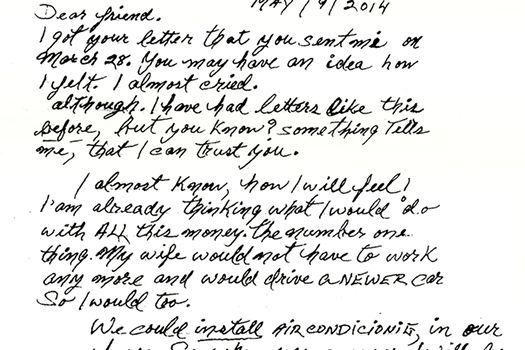 MAY/9/2014
Dear friend.
I got your letter that you sent me on
March 28. You may have an idea how
I felt. I almost cried.
although. I have had letters like this
before, but you know? something Tells
me, that I can trust you.
I almost know, how I will feel!
I'am already thinking what I would do
with ALL this money. the number one
thing. My wife would not have to work
any more and would drive a NEWER car
So I would too.
We could install AIRCONDICIONIG, in our